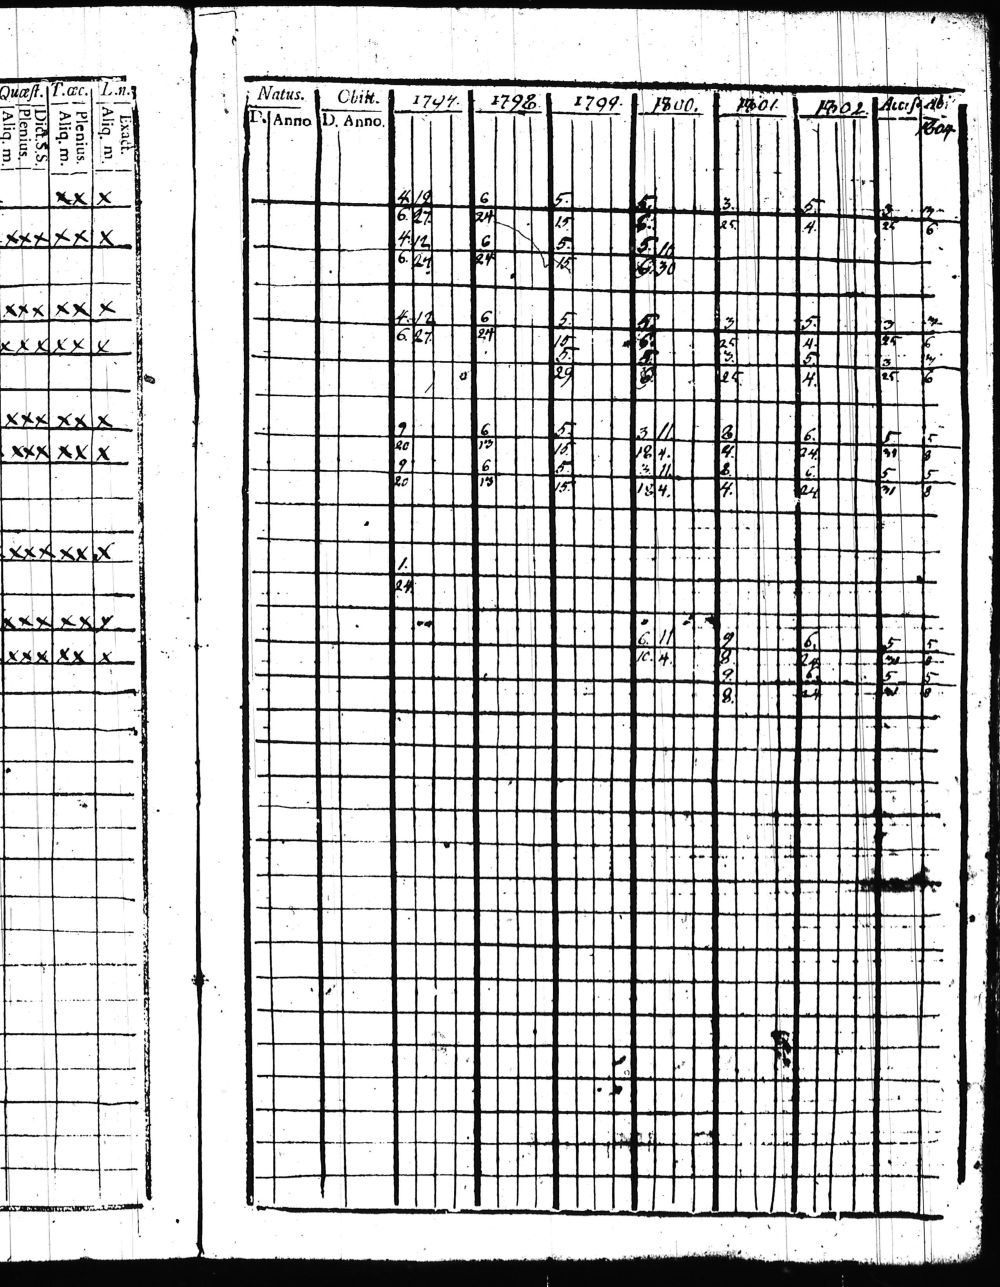 Quæst. T.œc. L.n.
Aliq. m. Plenius. Dict. S.S. Aliq. m. Plenius. Aliq. m. Exact.
x x x
x x x x x x
x x x x x x
x x x x x x
x x x x x x
x x x x x x
x x x x x x
x x x x x x
x x x x x x
Natus. Obiit. 1797. 1798. 1799. 1800. 1801. 1802. Access. Abi
D. Anno D. Anno. 1804
4. 19 6 5. 5. 3. 5. 3 3
6. 27. 24 15 6. 25. 4. 25 6
4. 12 6 5. 5. 18
6. 27. 24 15 6. 30
4. 12 6 5. 5. 3 5. 3 3
6. 27. 24 15. 6. 25 4. 25 6
5. 5. 3. 5. 3 3
29 6 25. 4. 25 6
9 6 5. 3. 11 8 6. 5 5
20 13 15. 18. 4. 4. 24. 31 8
9 6 5. 3. 11. 8. 6. 5 5
20 13 15. 18 4. 4. 24 31 8
1.
24.
6. 11 9 6. 5 5
10. 4. 8. 24. 31 8
9. 6. 5 5
8. 24 31 8